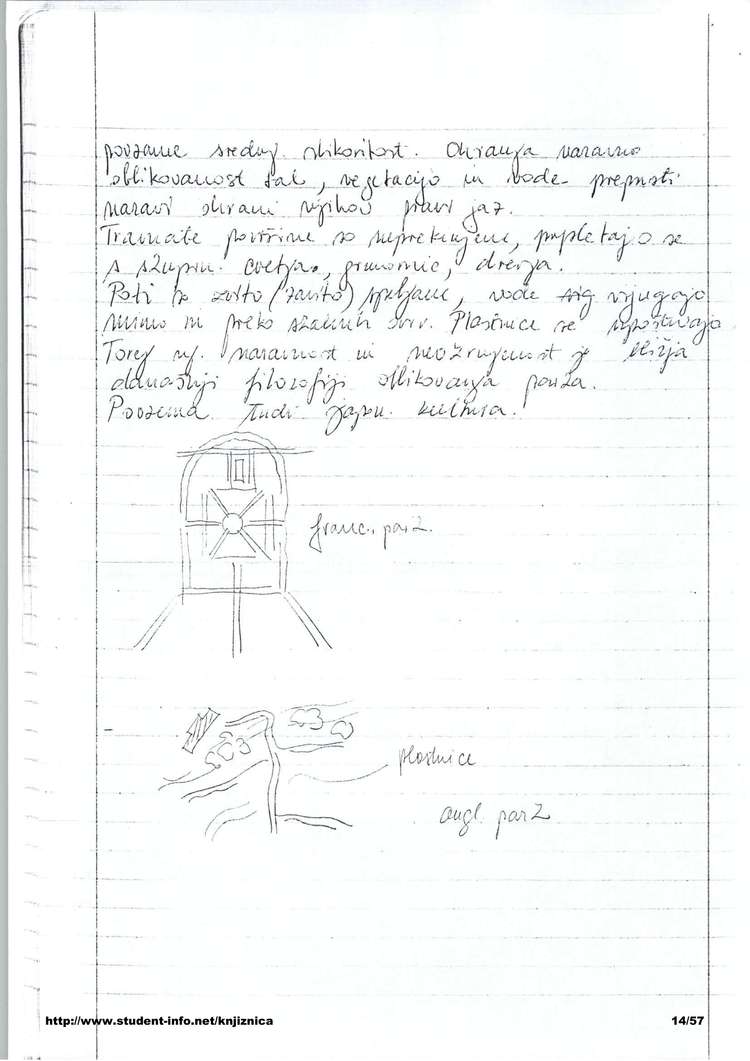 povzame srednj. slikovitost. Ohranja naravno
oblikovanost tal, vegetacijo in vode prepusti
naravi ohrani njihov pravi jaz.
Travnate površine so neprekinjene, prepletajo se
s skupin. cvetja, grmovnic, drevja.
Poti so zavito (zavito) speljane, vode vijugajo
mimo in preko. Plastnice se upoštevajo
Torej nj. naravnost in neokrnjenost je bližja
današnji filozofiji oblikovanja parka.
Povzema tudi japon. kultura.
franc. park.
plastnice
angl. park
http://www.student-info.net/knjiznica
14/57